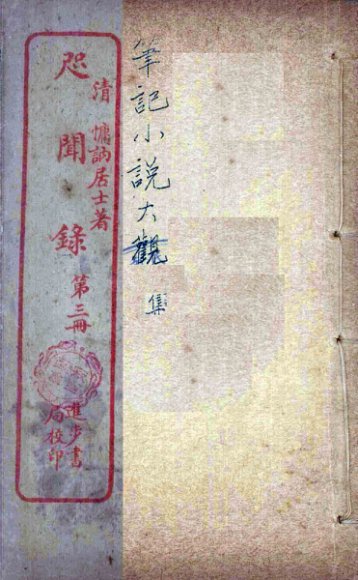 筆記小說大觀
集
清 慵訥居士著
咫聞錄 第三冊
進步書
局校印